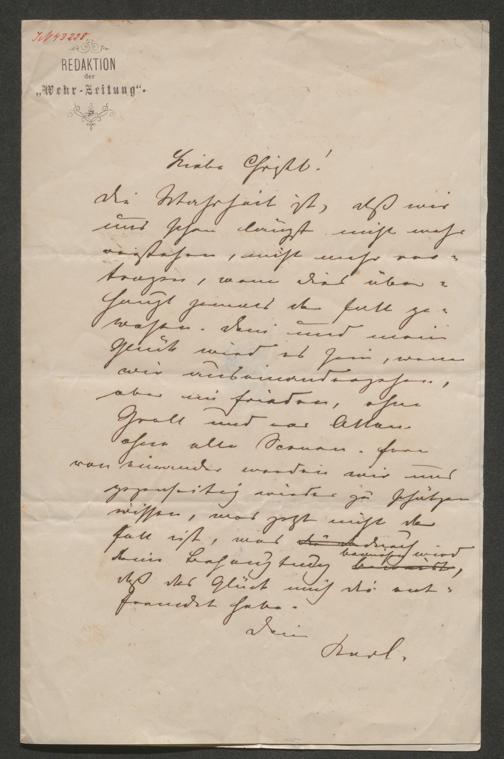 I.N. 43288.
REDAKTION
der
„Wehr-Zeitung“.
Liebe Christl!
Die Wahrheit ist, daß wir
uns schon längst nicht mehr
verstehen, nicht mehr ver-
tragen, wenn dies über-
haupt jemals der Fall ge-
wesen. Dein und mein
Glück wird es sein, wenn
wir auseinandergehen,
aber in Frieden, ohne
Groll und vor Allem
ohne alle Scenen. Fern
von einander werden wir uns
gegenseitig wieder zu schätzen
wissen, was jetzt nicht der
Fall ist, was
bewiesen wird
deine Behauptung
daß das Glück mich dir ent-
fremdet habe.
Dein
Karl.